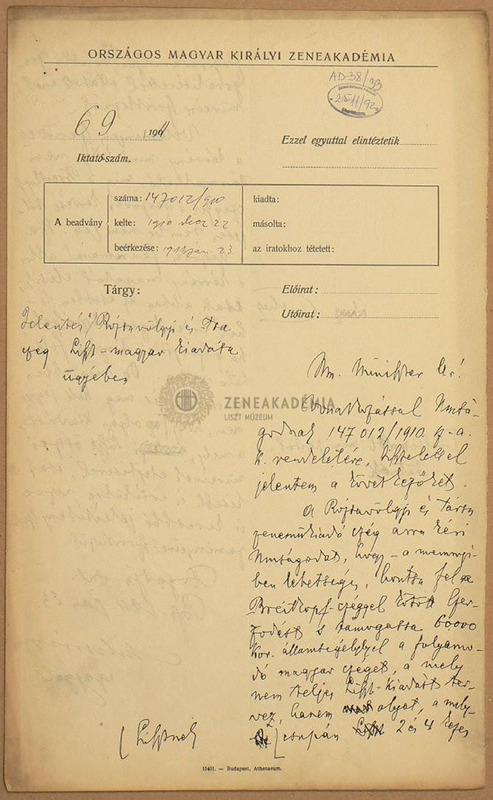 ORSZÁGOS MAGYAR KIRÁLYI ZENEAKADÉMIA
AD-38/93
69 1911
Iktató-szám.
Ezzel egyuttal elintéztetik
A beadvány
száma: 147012/910
kelte: 1910 dec 22
beérkezése: 1911 jan. 23
kiadta:
másolta:
az iratokhoz tétetett:
Tárgy:
Előirat:
Utóirat:
Jelentés Rózsavölgyi és Tsa
cég Liszt-magyar kiadása
ügyében
ZENEAKADÉMIA
LISZT MÚZEUM
Nm. Miniszter Úr!
Vonatkozással Nmltá-
godnak 147012/1910 sz. a.
k. rendeletére, tisztelettel
jelentem a következőket.
A Rózsavölgyi és Társa
zeneműkiadó cég arra kéri
Nmltságodat, hogy - a mennyi-
ben lehetséges, bontsa fel a
Breitkopf-céggel kötött szer-
ződést s támogassa 60000
kor. államsegéllyel a folyamo-
dó magyar céget, a mely
nem teljes Liszt-kiadást ter-
vez, hanem olyat, a mely-
csupán 2 és 4 kezes
(Lisztnek
11401. — Budapest, Athenaeum.